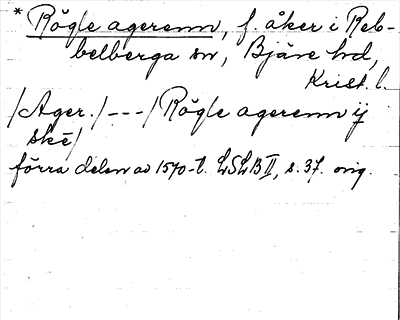 * Rögle agerenn, f. åker i Reb-
belberga sn, Bjäre hd,
Krist. l.
/Ager./ --- / Rögle agerenn ij
ske/
förra delen av 1570-t. LSLB II, s. 37. orig.